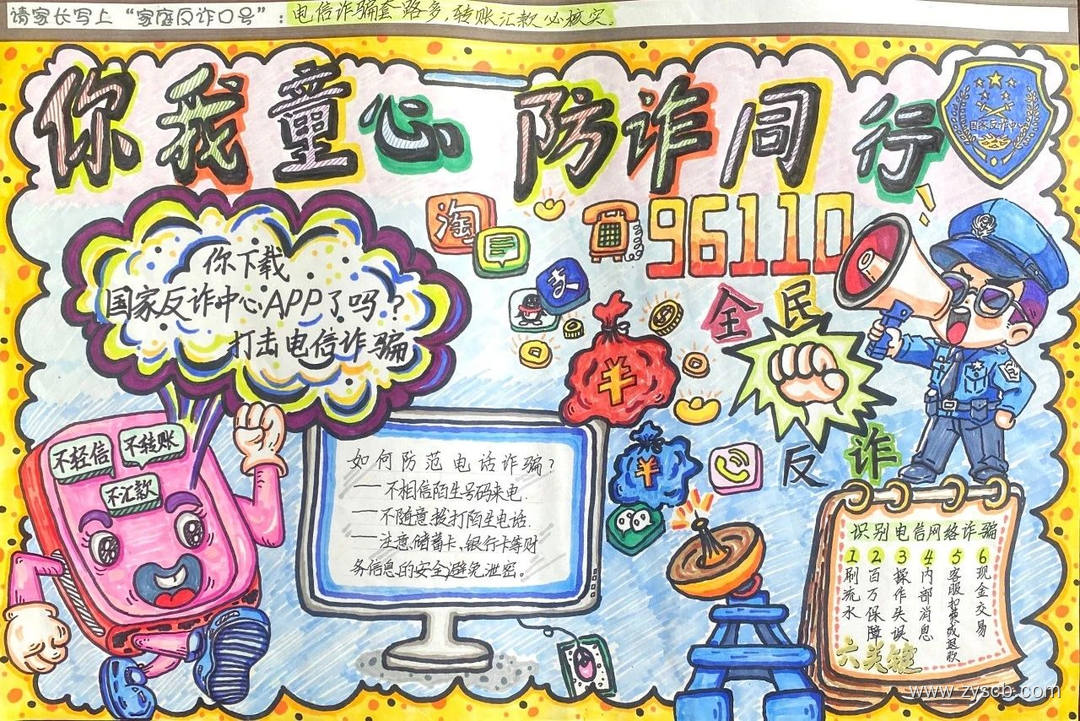 请家长写上“家庭反诈口号”：电信诈骗套路多,转账汇款必核实.
你我童心 防诈同行
淘
96110
支
你下载
国家反诈中心APP了吗？
打击电信诈骗
全民
¥
反诈
¥
不轻信
不转账
不汇款
如何防范电话诈骗？
一不相信陌生号码来电.
一不随意拨打陌生电话.
一注意储蓄卡、银行卡等财
务信息的安全,避免泄密。
识别电信网络诈骗
1 刷流水
2 百万保障
3 操作失误
4 内部消息
5 客服扮装成退款
6 现金交易
六关键
www.zyscb.com